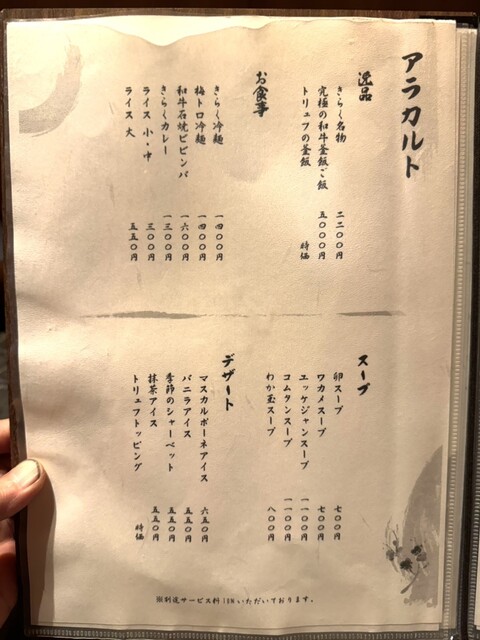 アラカルト
逸品
きらく名物
究極の和牛釜飯ご飯 二二〇〇円
トリュフの釜飯 五〇〇〇円
特価
お食事
きらく冷麺 一四〇〇円
梅トロ冷麺 一四〇〇円
和牛石焼ビビンバ 一六〇〇円
きらくカレー 一三〇〇円
ライス 小・中 三〇〇円
ライス 大 五五〇円
スープ
卵スープ 七〇〇円
ワカメスープ 七〇〇円
エッケジャンスープ 一一〇〇円
コムタンスープ 一一〇〇円
わか玉スープ 八〇〇円
デザート
マスカルポーネアイス 六五〇円
バニラアイス 五五〇円
季節のシャーベット 五五〇円
抹茶アイス 五五〇円
トリュフトッピング 特価
※別途サービス料10%いただいております。